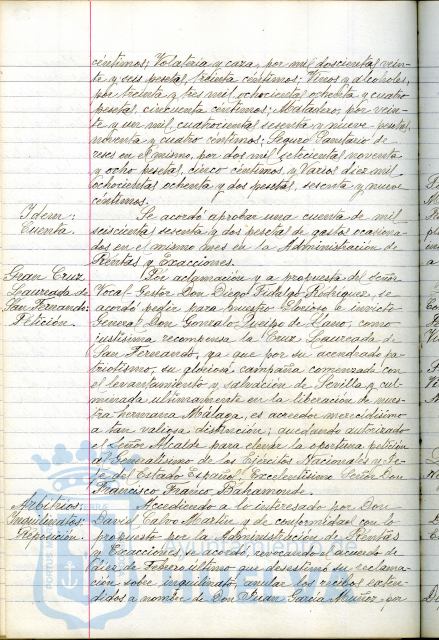 céntimos; Volatería y caza, por mil doscientas vein-
te y seis pesetas, treinta céntimos; Vinos y alcoholes,
por treinta y tres mil ochocientas ochenta y cuatro
pesetas, cincuenta céntimos; Matadero, por vein-
te y un mil cuatrocientas sesenta y nueve pesetas,
noventa y cuatro céntimos; Seguro Sanitario de
reses en el mismo, por dos mil setecientas noventa
y ocho pesetas, cinco céntimos y Varios diez mil
ochocientas ochenta y dos pesetas, sesenta y nueve
céntimos.
Idem:
Cuenta.
Se acordó aprobar una cuenta de mil
seiscientas sesenta y dos pesetas de gastos ocasiona-
dos en el mismo mes en la Administración de
Rentas y Exacciones.
Gran Cruz
Laureada de
San Fernando:
Petición.
Por aclamación y a propuesta del Señor
Vocal Gestor Don Diego Fidalgo Rodríguez, se
acordó pedir para nuestro Glorioso e invicto
General Don Gonzalo Queipo de Llano, como
justísima recompensa la Cruz Laureada de
San Fernando, ya que por su acendrado pa-
triotismo, su gloriosa campaña comenzada con
el levantamiento y salvación de Sevilla y cul-
minada ultimamente en la liberación de nues-
tra hermana Málaga, es acreedor merecidísimo
a tan valiosa distinción; quedando autorizado
el Señor Alcalde para elevar la oportuna petición
al Generalísimo de los Ejércitos Nacionales y Je-
fe del Estado Español, Excelentísimo Señor Don
Francisco Franco Bahamonde.
Arbitrios:
Inquilinatos:
Reposición.
Accediendo a lo interesado por Don
David Calvo Martín y de conformidad con lo
propuesto por la Administración de Rentas
y Exacciones, se acordó, revocando el acuerdo de
diez de Febrero último que desestimó su reclama-
ción sobre inquilinato, anular los recibos exten-
didos a nombre de Don Juan García Muñoz, por